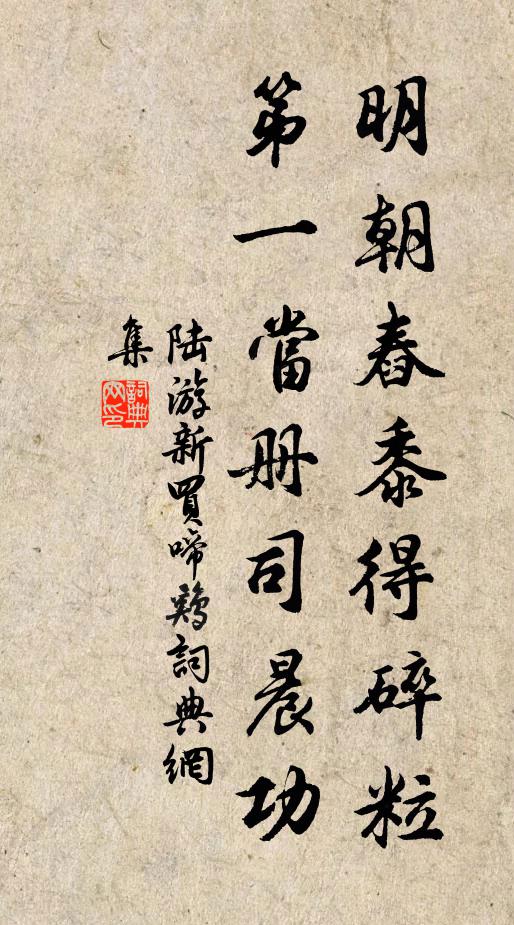 明朝舂黍得碎粒
第一當册司晨功
陸游新買啼鷄詞典網
集
詞典
网